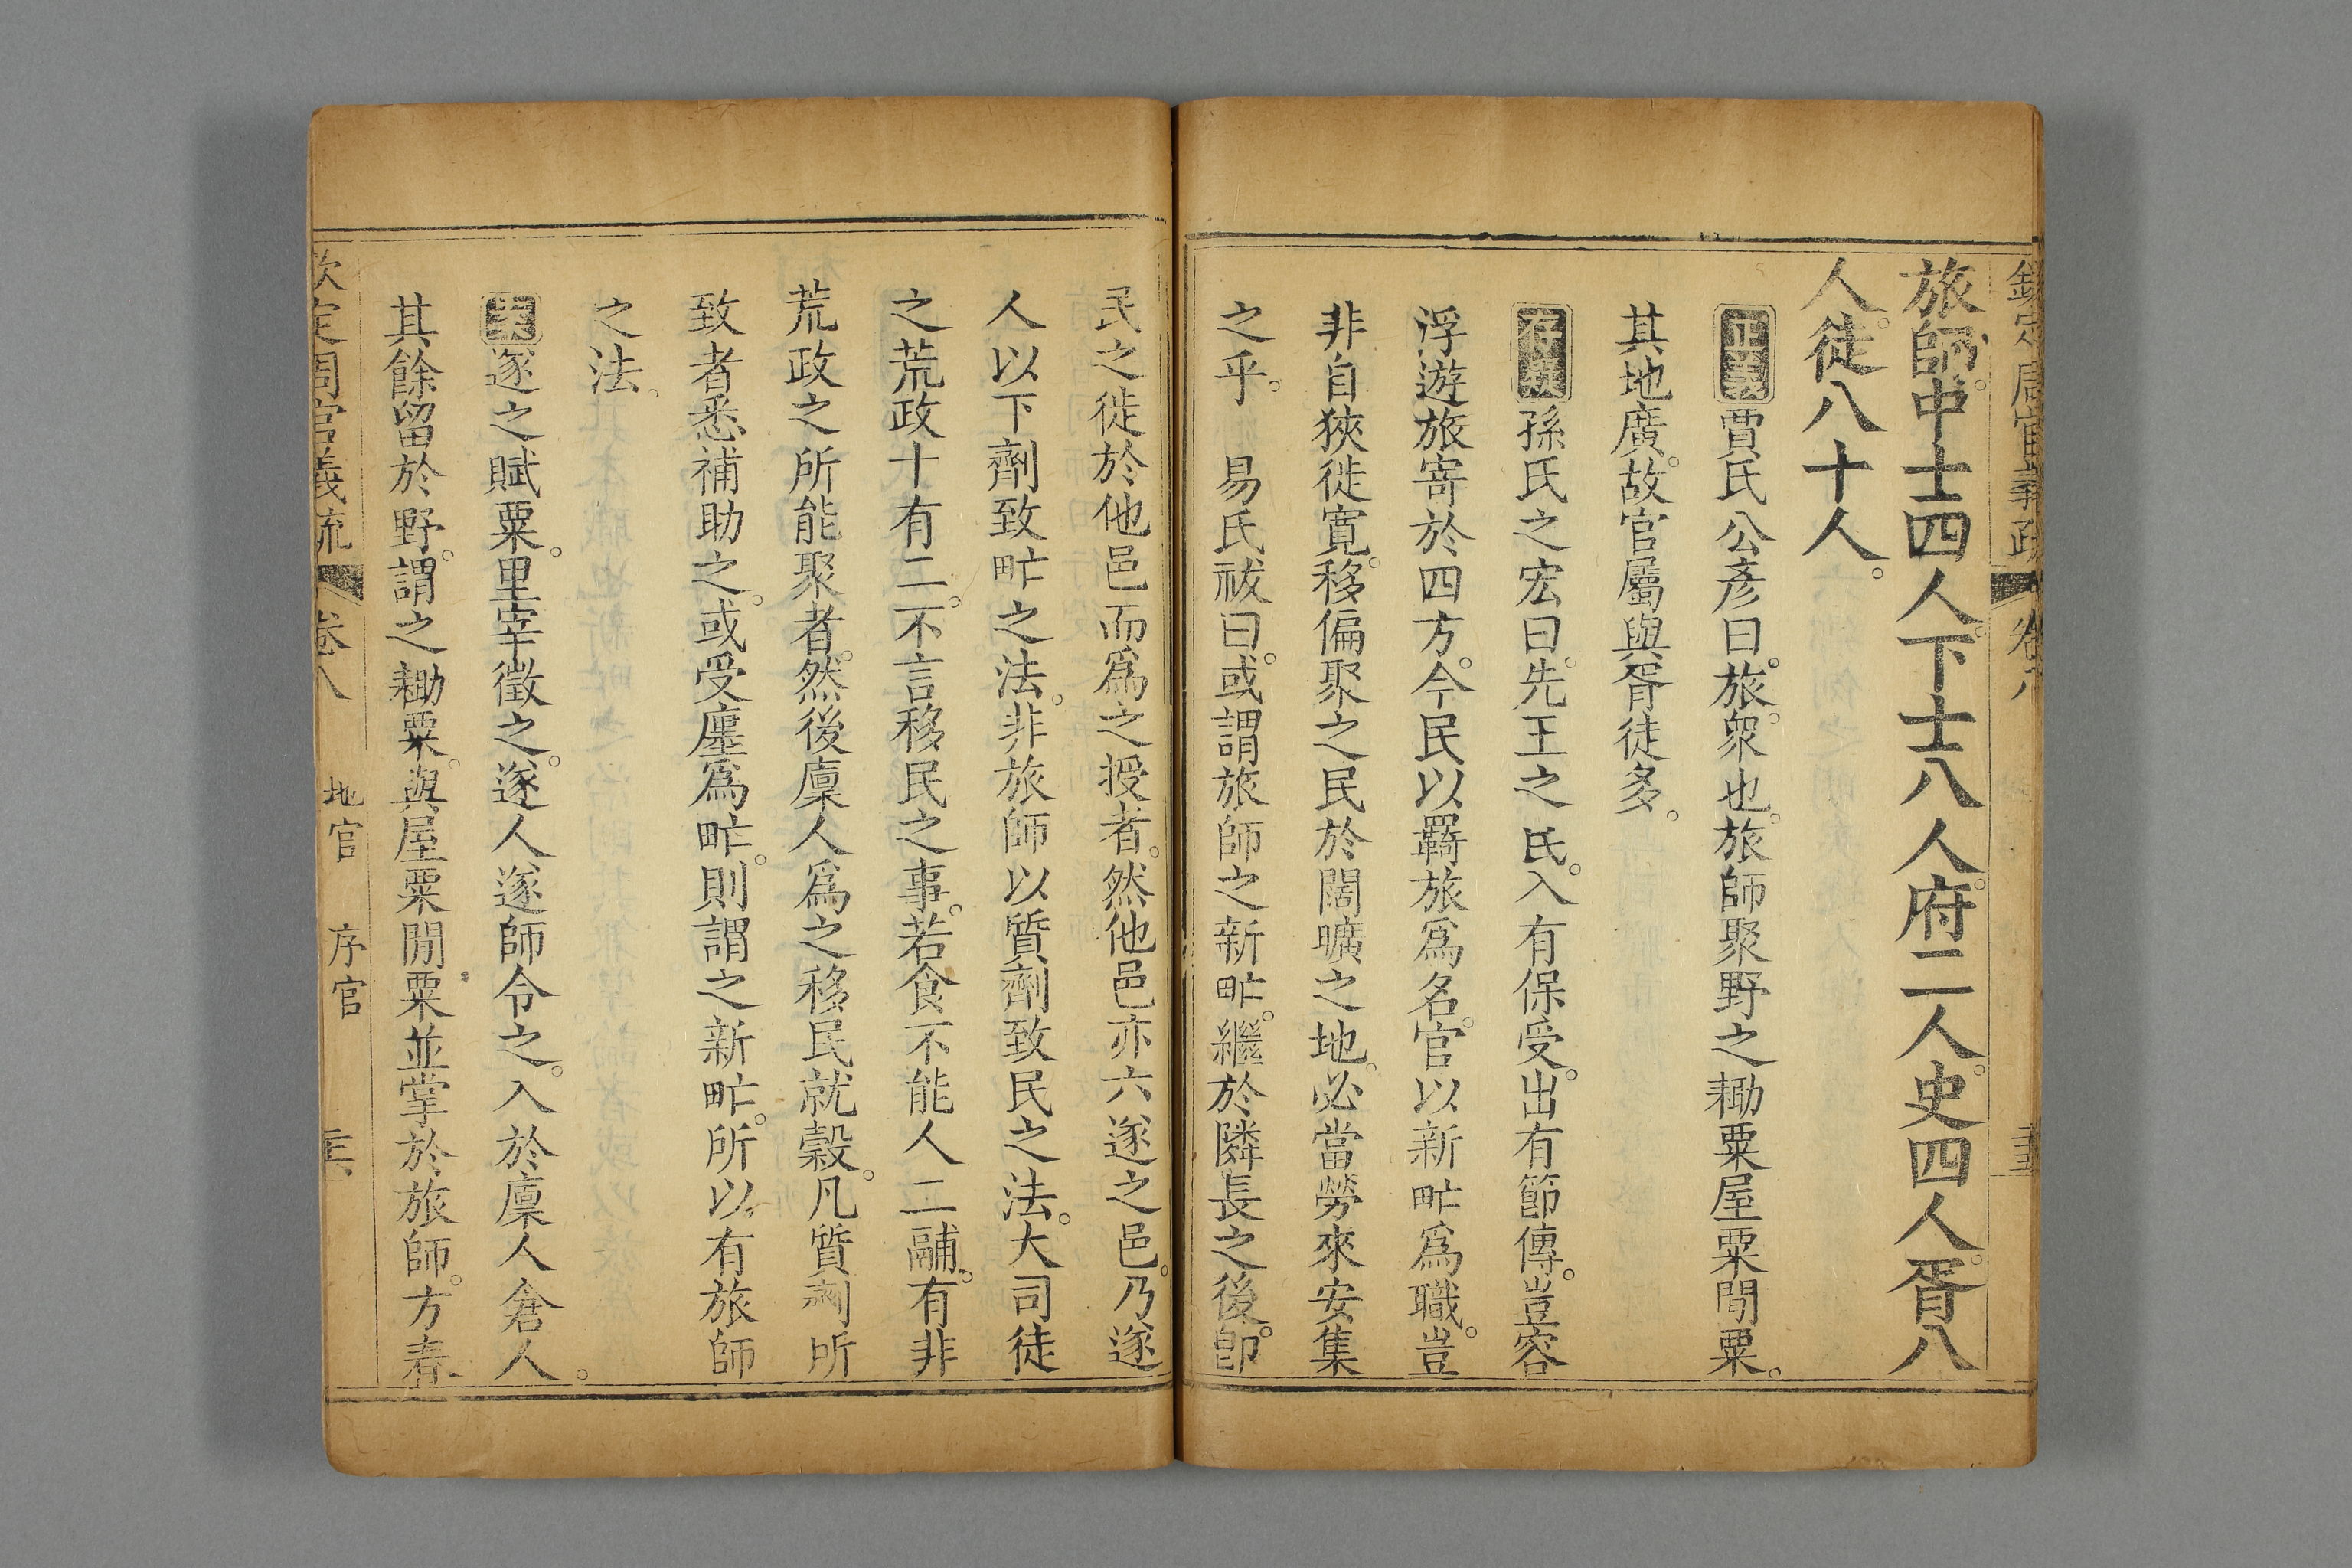 欽定周官義疏 卷八
旅師。中士四人。下士八人。府二人。史四人。胥八
人。徒八十人。
正義賈氏公彥曰。旅。衆也。旅師聚野之耡粟屋粟閒粟。
其地廣。故官屬與胥徒多。
存疑孫氏之宏曰。先王之氏。入有保受。出有節傳。豈容
浮遊旅寄於四方。今民以羇旅爲名。官以新甿爲職。豈
非自狹徙寬。移偏聚之民於闊曠之地。必當勞來安集
之乎。 易氏祓曰。或謂旅師之新甿。繼於隣長之後。卽
民之徙於他邑而爲之授者。然他邑亦六遂之邑。乃遂
人以下劑致甿之法。非旅師以質劑致民之法。大司徒
之荒政十有二。不言移民之事。若食不能人二鬴。有非
荒政之所能聚者。然後廩人爲之移民就穀。凡質劑所
致者悉補助之。或受廛爲甿。則謂之新甿。所以有旅師
之法。
遂之賦粟。里宰徵之。遂人遂師令之。入於廩人倉人。
其餘留於野。謂之耡粟。與屋粟閒粟並掌於旅師。方春
欽定周官義疏 卷八 地官 序官